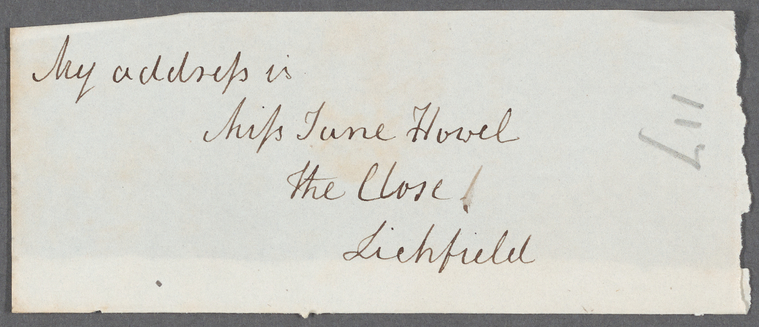 My address is
Miss Jane Howel
The Close
Lichfield
117